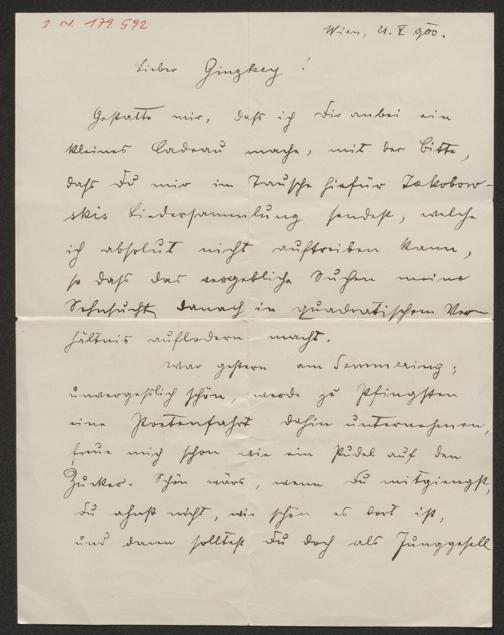 I.N. 179.592
Wien, 21. V 900.
Lieber Ginzkey!
Gestatte mir, daſs ich Dir anbei ein
kleines Cadeau mache, mit der Bitte,
daſs Du mir im Tausche hiefür Jakobow-
skis Liedersammlung sendest, welche
ich absolut nicht auftreiben kann,
so daſs das vergebliche Suchen meine
Sehnsucht danach in quadratischem Ver-
hältnis auflodern macht.
War gestern am Semmering;
unvergeſslich schön, werde zu Pfingsten
eine Poetenfahrt dahin unternehmen,
freue mich schon wie ein Pudel auf den
Zucker. Schön wärs, wenn Du mitgiengst,
Du ahnst nicht, wie schön es dort ist,
und dann solltest Du doch als Junggesell